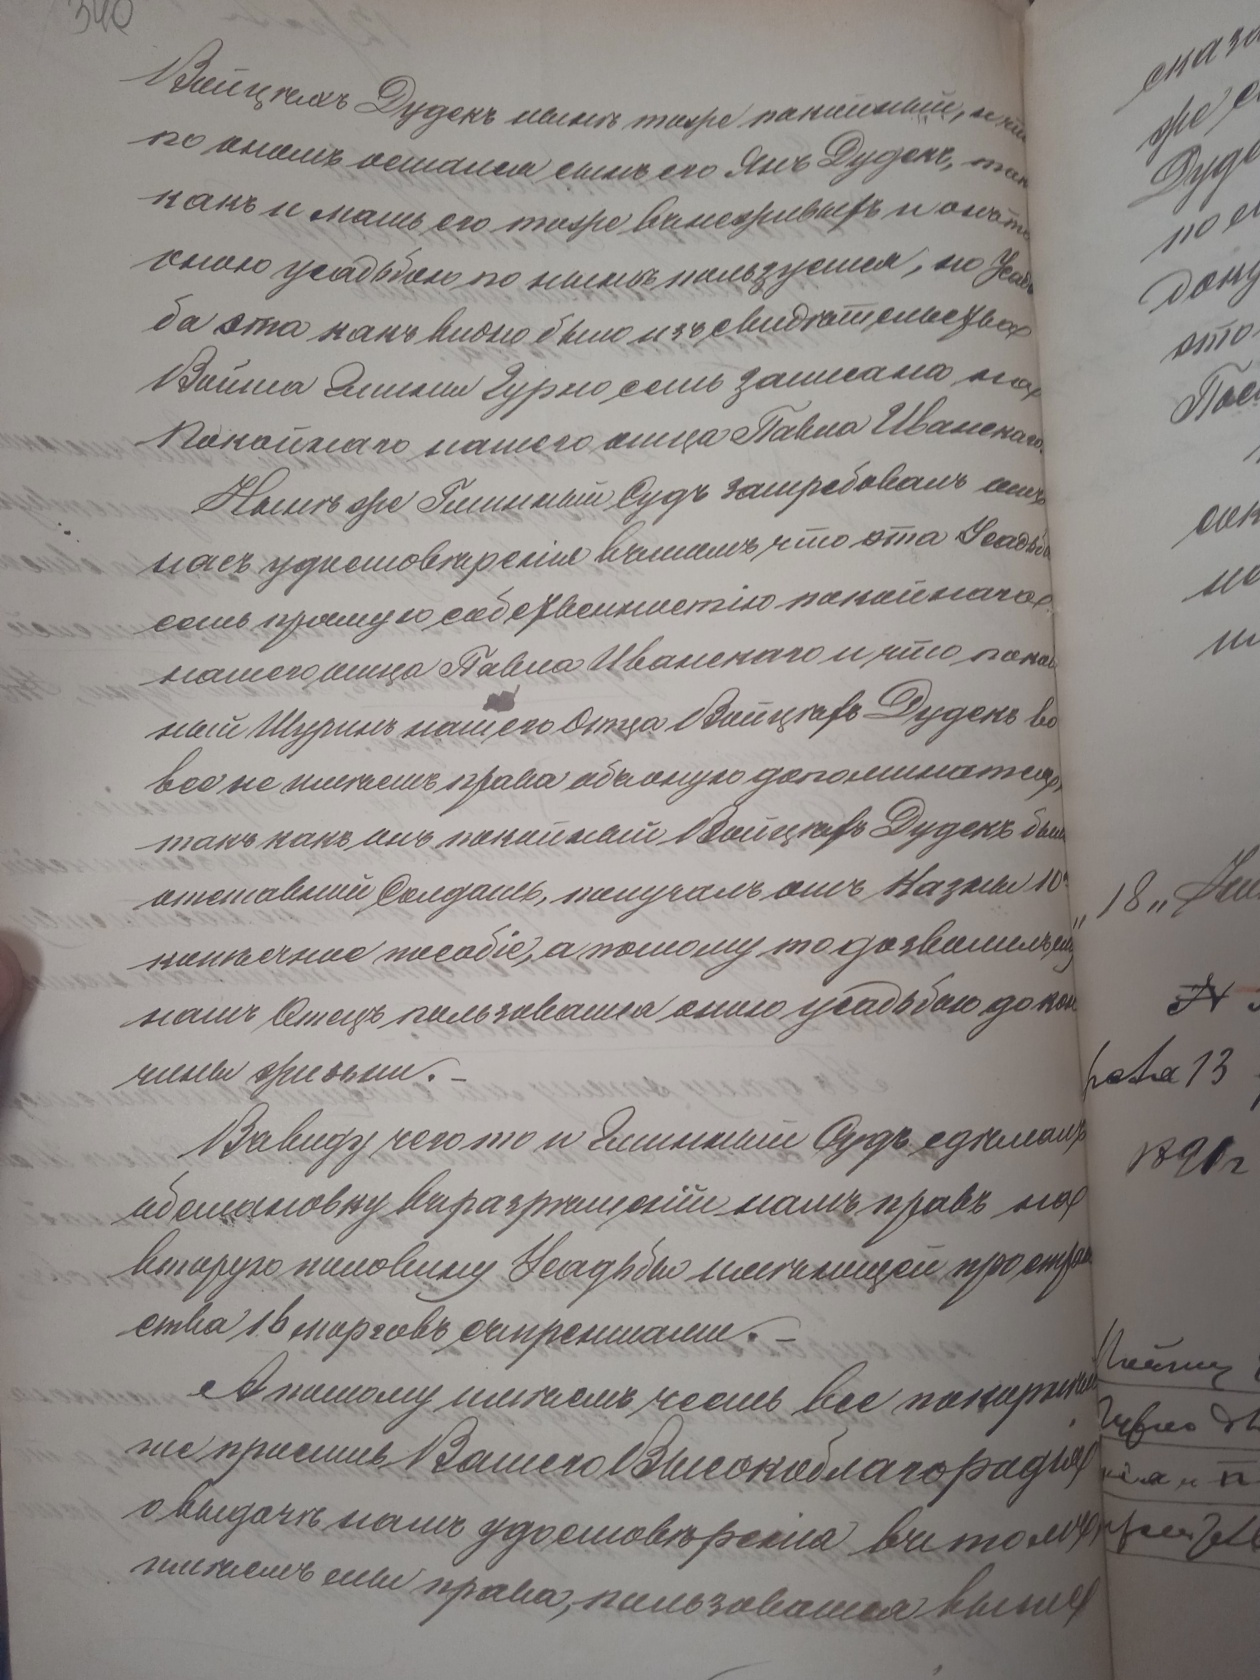 340
Войцехъ Дудекъ нынѣ тоже покойный, и что
по ономъ остался сынъ его Янъ Дудекъ, такъ
какъ и мать его тоже
оною усадьбою по нынѣ пользуется, но Усадь
ба эта какъ видно было изъ свидѣтельства
Войта Гмины Гурно есть записана на
Покойнаго нашего отца Павла Иванскаго.
Нынѣ же Гминный Судъ затребовалъ отъ
насъ удостовѣренія въ томъ, что эта Усадьба
есть прямую собственностію покойнаго
нашего отца Павла Иванскаго и что покой
ный Шуринъ нашего Отца Войцехъ Дудекъ во
все не имѣетъ права объ оную допоминаться,
такъ какъ онъ покойный Войцехъ Дудекъ былъ
отставный Солдатъ, получалъ отъ Казны 10
копѣечное пособіе, а потому то дозволилъ ему
нашъ Отецъ пользоватся оною усадьбою до кон
чины жизни. –
Въ виду чего то и Гминный Судъ сдѣлалъ
обстановку въ разрѣшеніи намъ правъ на
вторую половину Усадьбы имѣющей простран
ства 16 морговъ съ прентами. –
А потому имѣемъ честь все покорнѣй
ше просить Вашего Высокоблагородія
о выдачѣ намъ удостовѣренія въ томъ,
имѣемъ мы права, пользоватся выше
сказа
же
Дуде
по
доку
это
Пос
„18„
13
1891 г